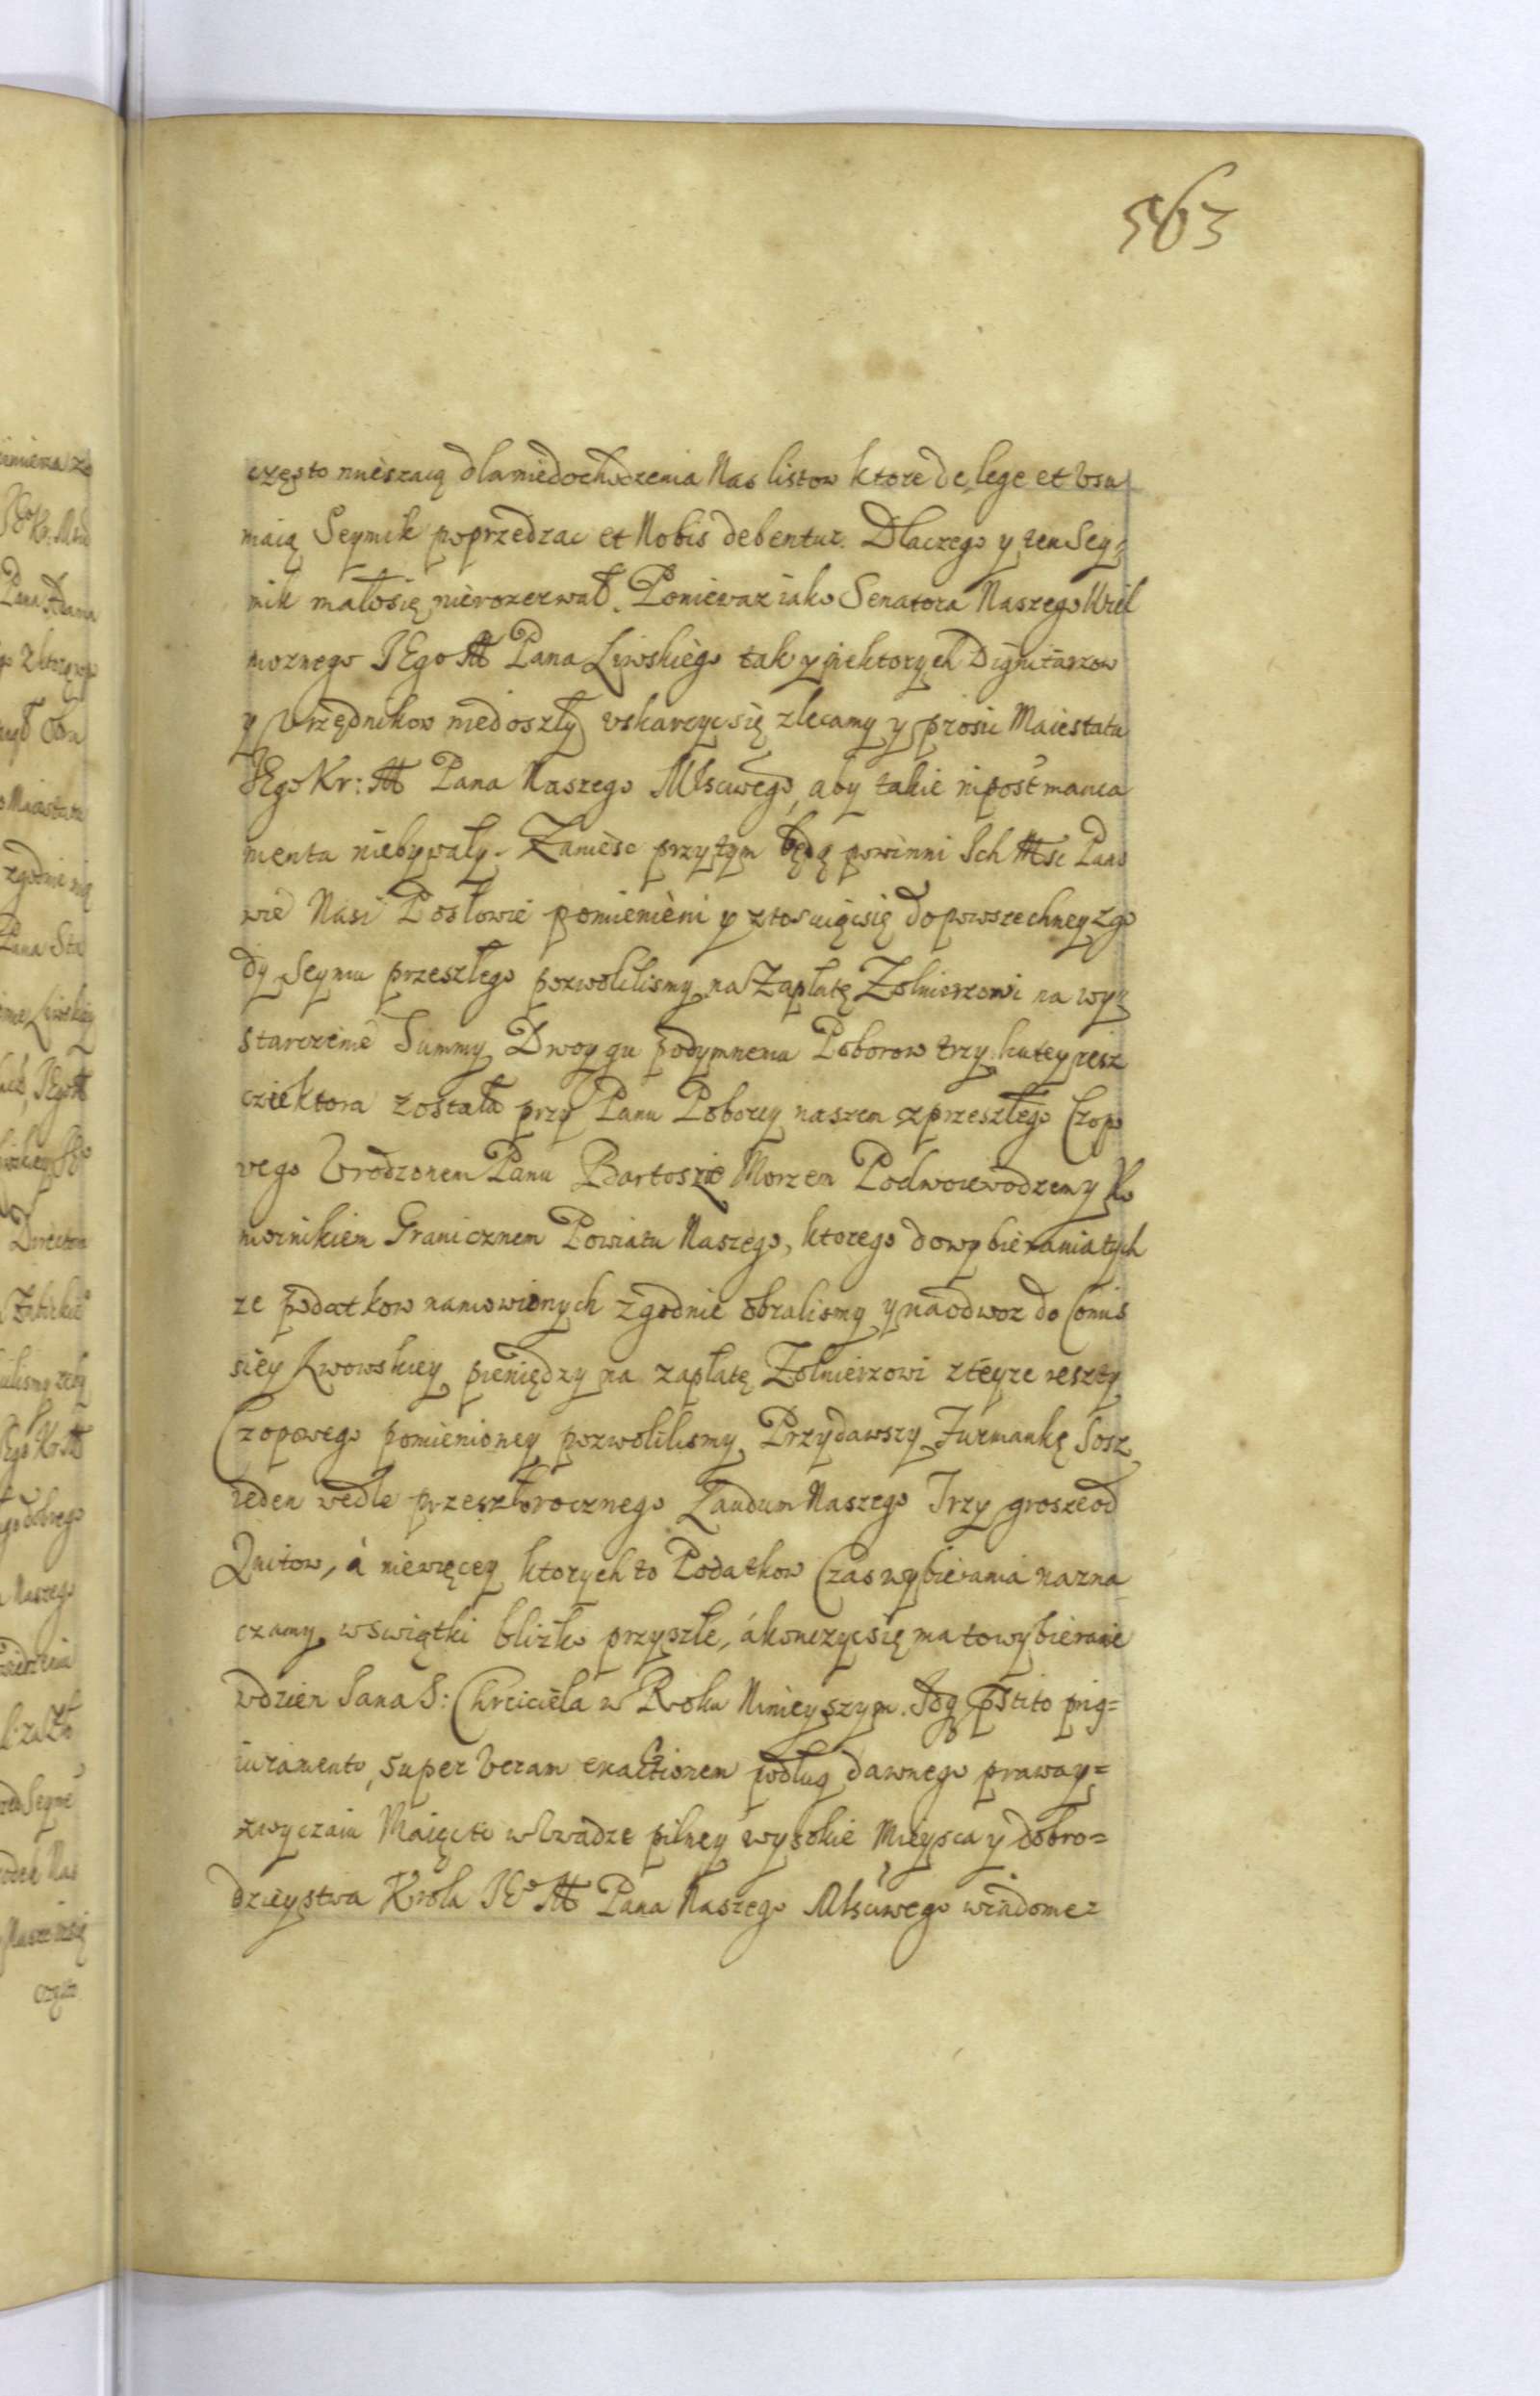 563
często mieszaią dla niedochodzenia Nas listow ktore de lege et Vsu
maią Seymik poprzedzac et Nobis debentur. Dlaczego y ten Sey=
mik małosię nierozerwał. Poniewaz iako Senatora Naszego Wiel
moznego JEgo M Pana Liwskiego tak y niektorych Dignitarzow
y Vrzędnikow niedoszły vskarzyc się zlecamy y prosic Maiestatu
JEgo Kr: M Pana Naszego Msciwego, aby takie in post manca
menta niebywały. Zaniesc przytym będą powinni Ich Msc Pano
wie Nasi Posłowie pomienieni yz stosuiącsię do powszechney zgo
dy Seymu przeszłego pozwolilismy na Zapłatę Zołnierzowi na wy=
starczenie Summy Dwoygu podymnema Poborow trzy ku tey resz
cie ktora została przy Panu Poborcy naszem z przeszłego Czopo
wego Vrodzonem Panu Bartoszie Morzem Podwoiewodzem y Ko
mornikiem Granicznem Powiatu Naszego, ktorego do wybierania tych
ze podatkow namowionych zgodnie obralismy y na odwoz do Comis
siey Lwowskiey pieniędzy na zapłatę Zołnierzowi z teyze reszty
Czopowego pomienioney pozwolilismy Przydawszy Furmankę Sosz
ieden wedle przeszłorocznego Laudum Naszego Trzy grosze od
Quitow, á niewięcey ktorych to Podatkow Czas wybierania nazna
czamy w swiątki blizko przyszłe, á konczyc się ma to wybieranie
w dzien Jana S: Chrciciela w Roku Ninieyszym. pstito prig=
iuramento, super Veram exactionem podług dawnego prawa y=
zwyczaiu Maiącte w Vwadze pilney wysokie Mieysca y dobro=
dzieystwa Krola JEo M Pana Naszego Msciwego wiadome=